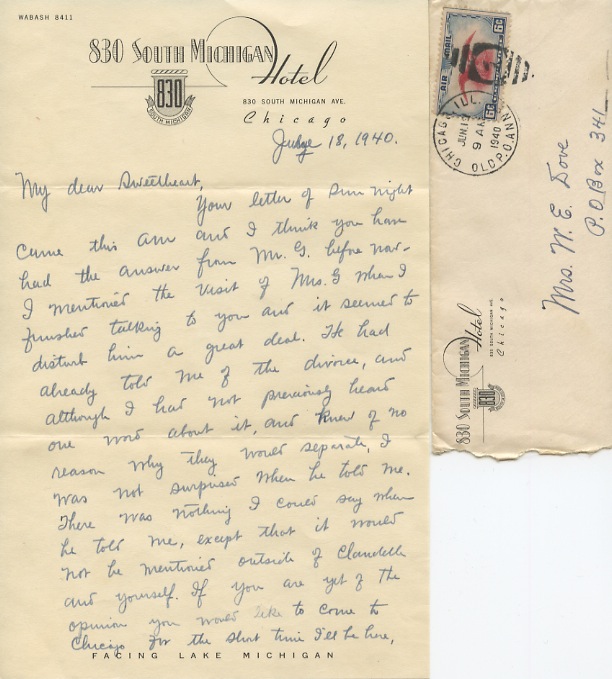 WABASH 8411
830 SOUTH MICHIGAN
Hotel
830
SOUTH MICHIGAN
830 SOUTH MICHIGAN AVE.
Chicago
18, 1940.
My dear Sweetheart,
Your letter of Sun night
came this am and I think you have
had the answer from Mr. G. before now-
I mentioned the visit of Mrs. G when I
finished talking to you and it seemed to
disturb him a great deal. He had
already told me of the divorce, and
although I had not previously heard
one word about it, and knew of no
reason why they would separate, I
was not surprised when he told me.
There was nothing I could say when
he told me, except that it would
not be mentioned outside of
and yourself. If you are yet of the
opinion you would like to come to
Chicago for the short time I'll be here,
FACING LAKE MICHIGAN
AIR MAIL
6c
6c
CHICAGO, ILL.
JUN 19
9 AM
1940
OLD P.O. ANNEX
Mrs. W. E. Dove
P.O Box 341
830 SOUTH MICHIGAN
Hotel
830 SOUTH MICHIGAN AVE.
Chicago
830